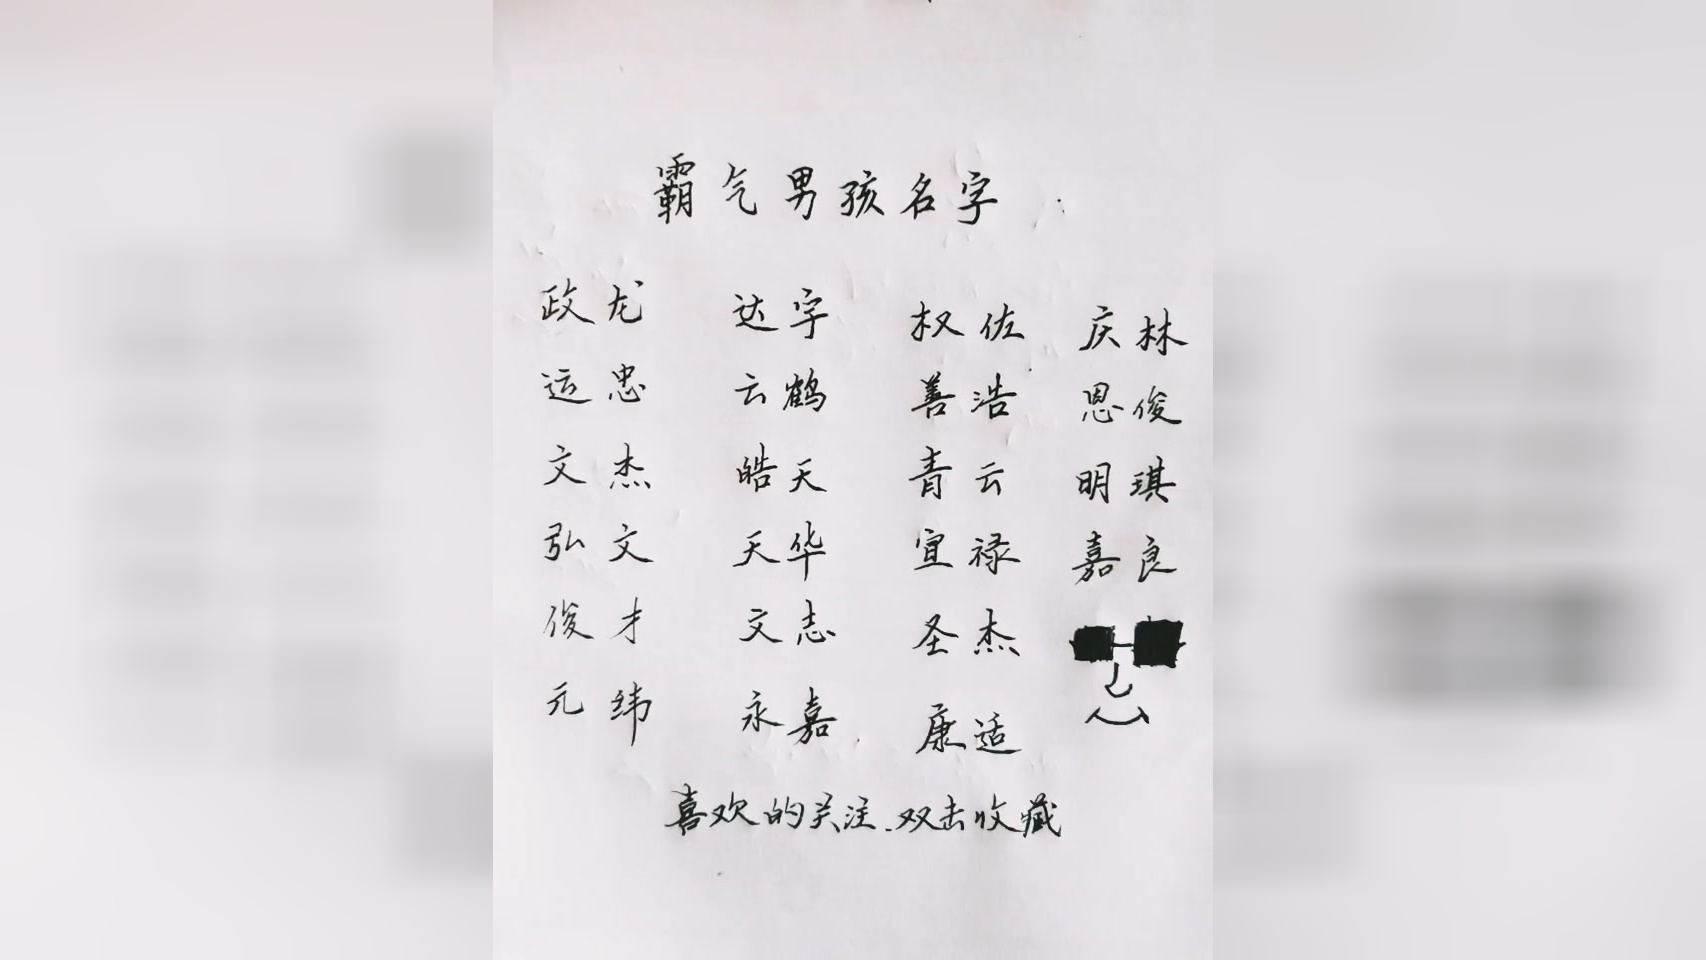 霸气男孩名字：
政龙 达宇 权佐 庆林
运忠 云鹤 善浩 恩俊
文杰 皓天 青云 明琪
弘文 天华 宣禄 嘉良
俊才 文志 圣杰
元纬 永嘉 康适
喜欢的关注.双击收藏